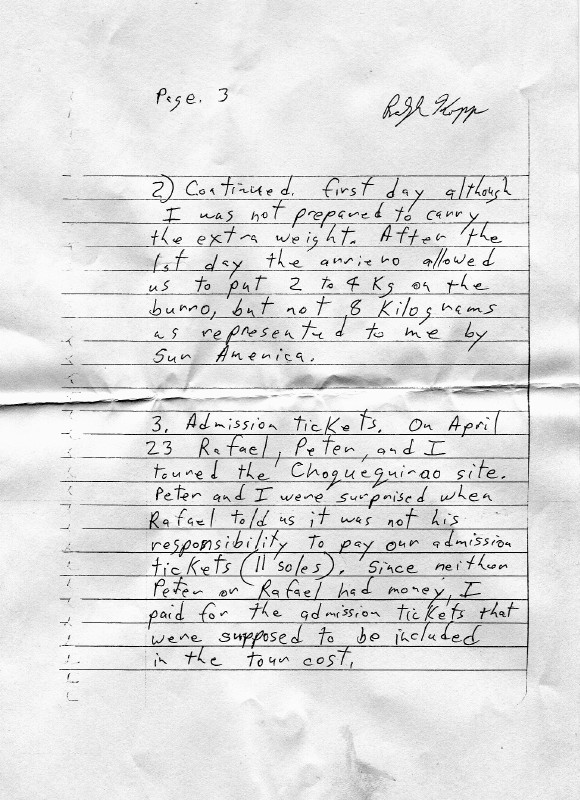 Page. 3
Ralph Kopp
2) Continued. first day although
I was not prepared to carry
the extra weight. After the
1st day the arriero allowed
us to put 2 to 4 Kg on the
burro, but not 8 Kilograms
as represented to me by
Sun America.
3. Admission tickets. On April
23 Rafael, Peter, and I
toured the Choquequirao site.
Peter and I were surprised when
Rafael told us it was not his
responsibility to pay our admission
tickets (11 soles). Since neither
Peter or Rafael had money, I
paid for the admission tickets that
were supposed to be included
in the tour cost.